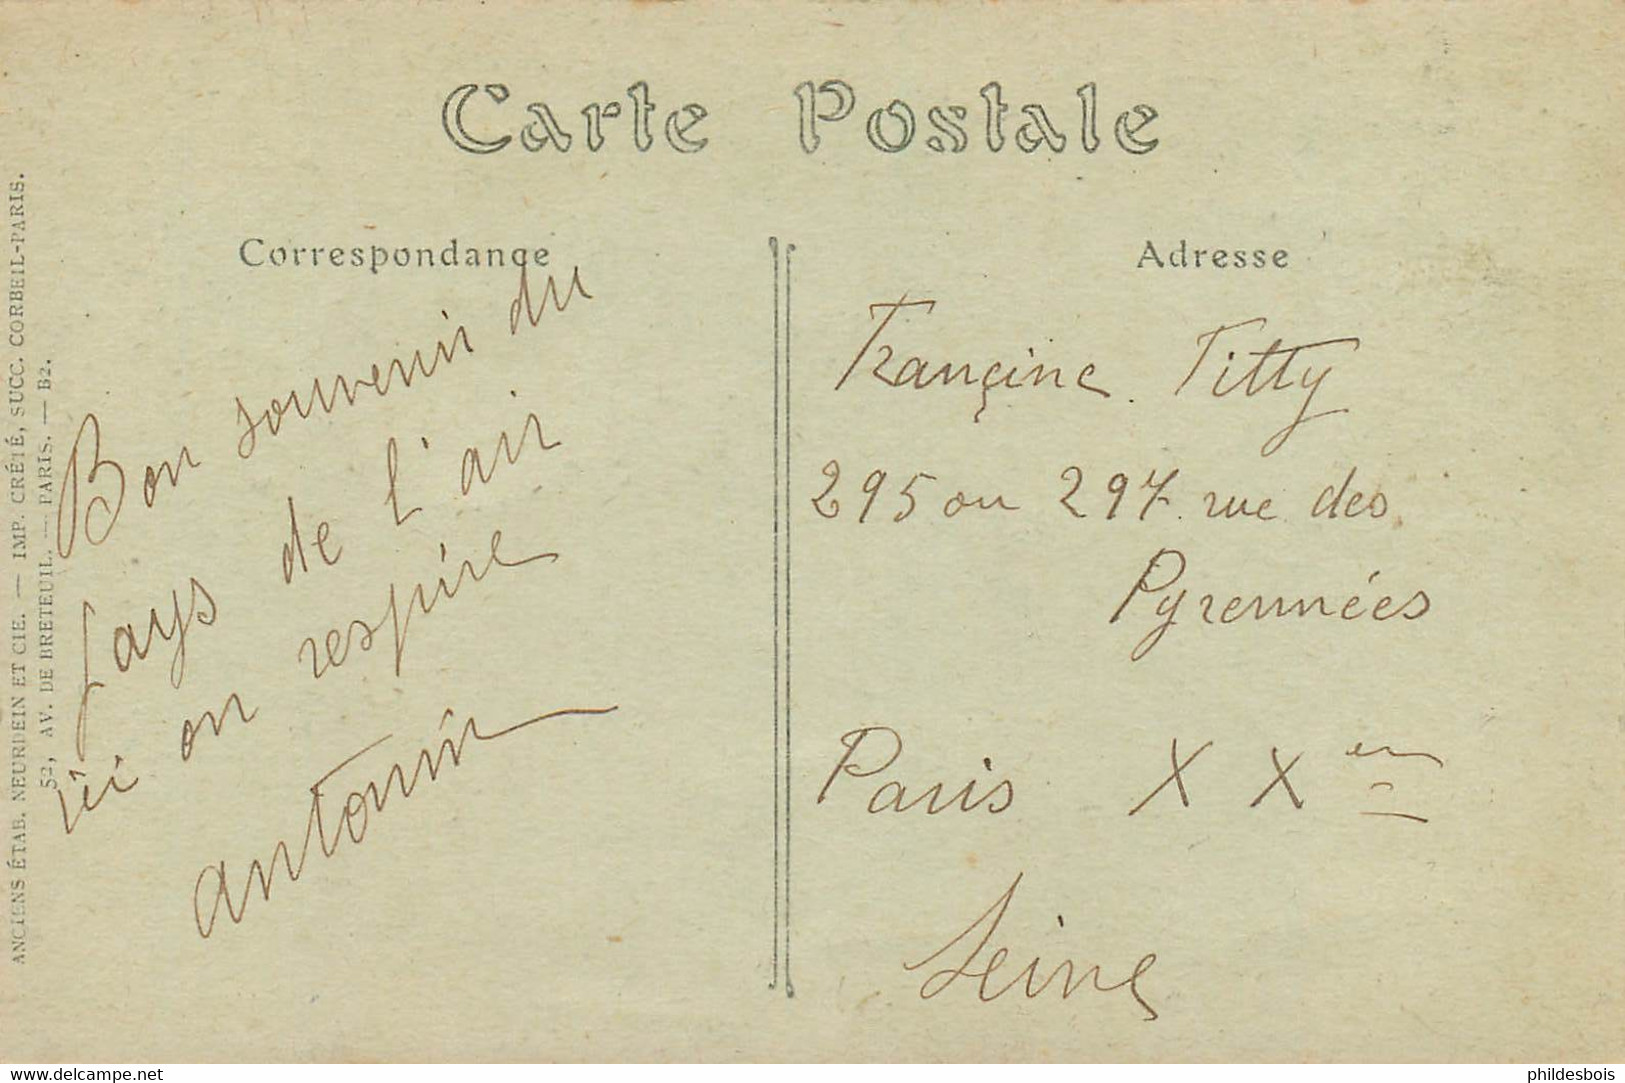 Carte Postale
Correspondance
Bon souvenir du
pays de l'air
ici on respire
Antonin
Adresse
Françine Titty
295 ou 297 rue des
Pyrennées
Paris XX en
Seine
ANCIENS ÉTAB. NEURDEIN ET CIE. — IMP. CRÉTÉ, SUCC. CORBEIL-PARIS.
52, AV. DE BRETEUIL. — PARIS. — B2.
www.delcampe.net
phildesbois